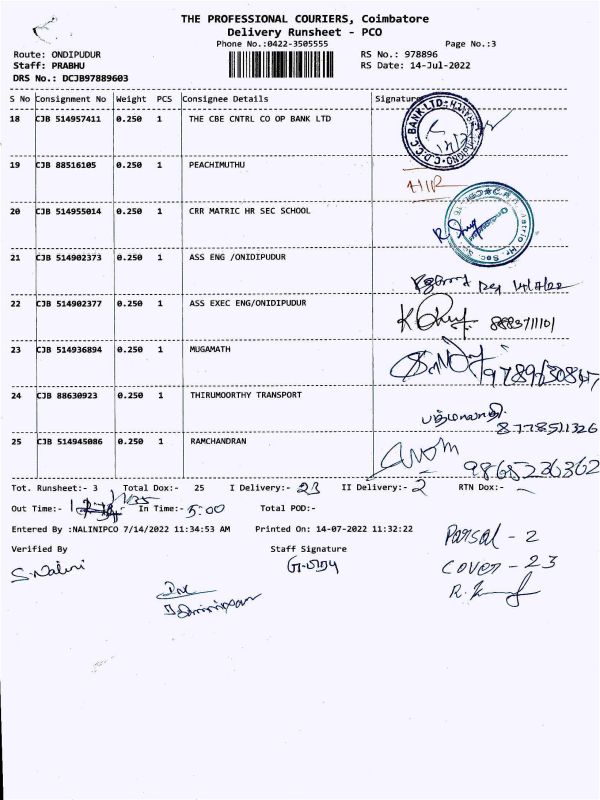 THE PROFESSIONAL COURIERS, Coimbatore
Delivery Runsheet - PCO
Phone No.:0422-3505555
Page No.:3
Route: ONDIPUDUR
RS No.: 978896
Staff: PRABHU
RS Date: 14-Jul-2022
DRS No.: DCJB97889603
S No Consignment No Weight PCS Consignee Details Signature
18 CJB 514957411 0.250 1 THE CBE CNTRL CO OP BANK LTD
19 CJB 88516105 0.250 1 PEACHIMUTHU
20 CJB 514955014 0.250 1 CRR MATRIC HR SEC SCHOOL
21 CJB 514902373 0.250 1 ASS ENG /ONIDIPUDUR
22 CJB 514902377 0.250 1 ASS EXEC ENG/ONIDIPUDUR
8883711101
23 CJB 514936894 0.250 1 MUGAMATH
24 CJB 88630923 0.250 1 THIRUMOORTHY TRANSPORT
பத்மாவதி
8778511326
25 CJB 514945086 0.250 1 RAMCHANDRAN
9865236362
Tot. Runsheet:- 3 Total Dox:- 25 I Delivery:- 23 II Delivery:- 2 RTN Dox:- -
Out Time:- 11/35 In Time:- 5:00 Total POD:-
Entered By :NALINIPCO 7/14/2022 11:34:53 AM Printed On: 14-07-2022 11:32:22
Verified By Staff Signature
S.Nalini
Parsal - 2
Cover - 23